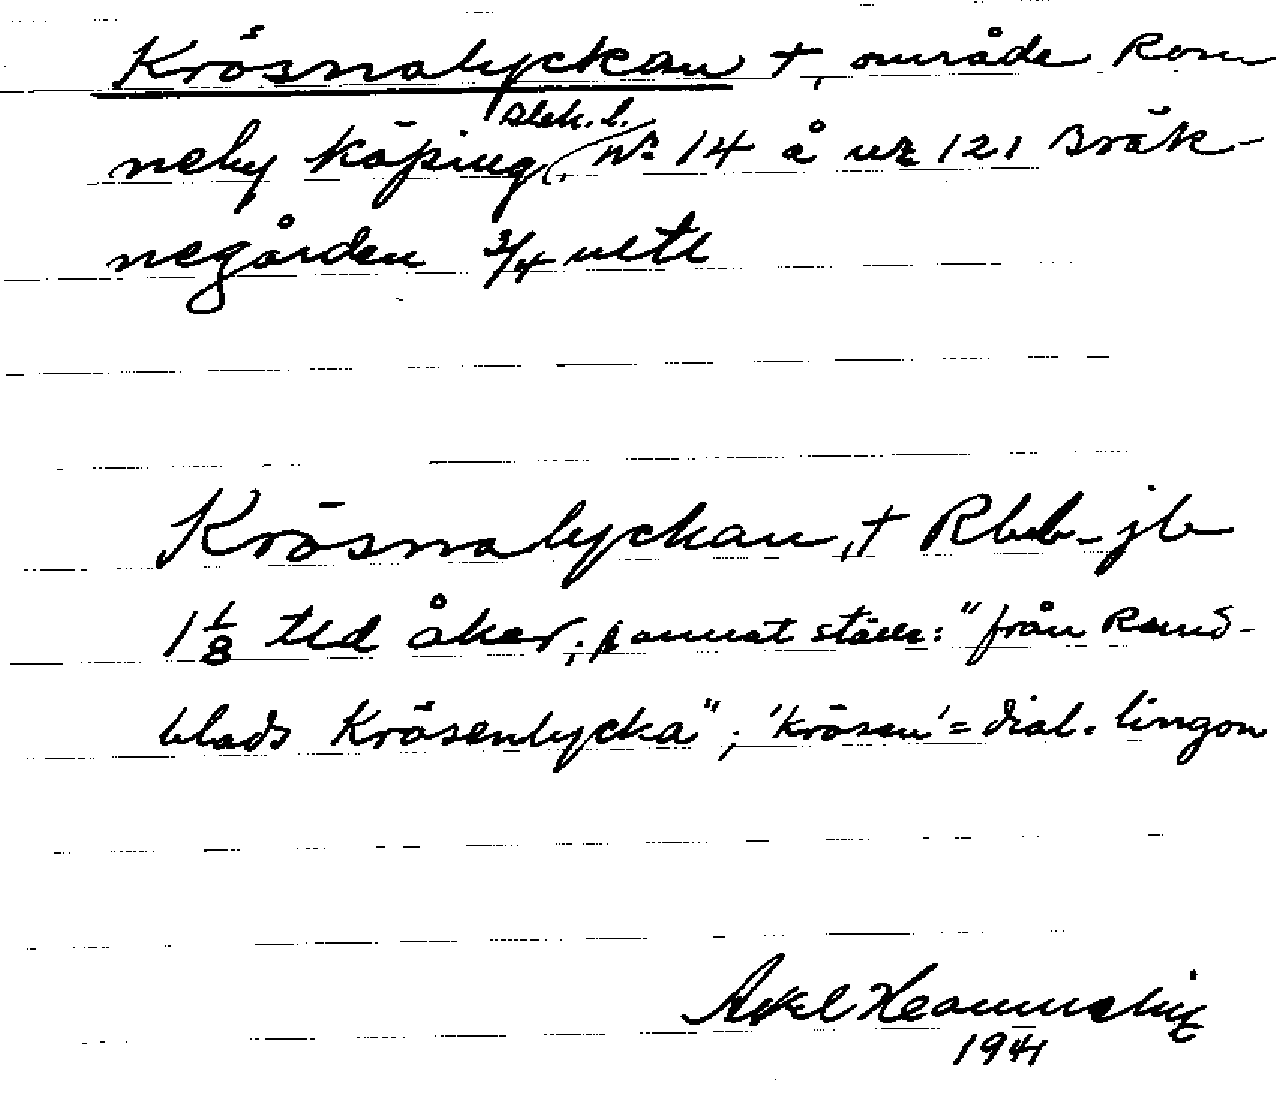 Krösnalyckan †, område Ron-
neby köping, Blek. l.
nr 14 å urk 121 Bräk-
negården 3/4 mtl
Krösnalyckan, † Rbeb-jb
1 1/8 tld åker; å annat ställe: "från Rund-
blads Krösenlycka"; 'krösen' = dial. lingon
Axel
1941